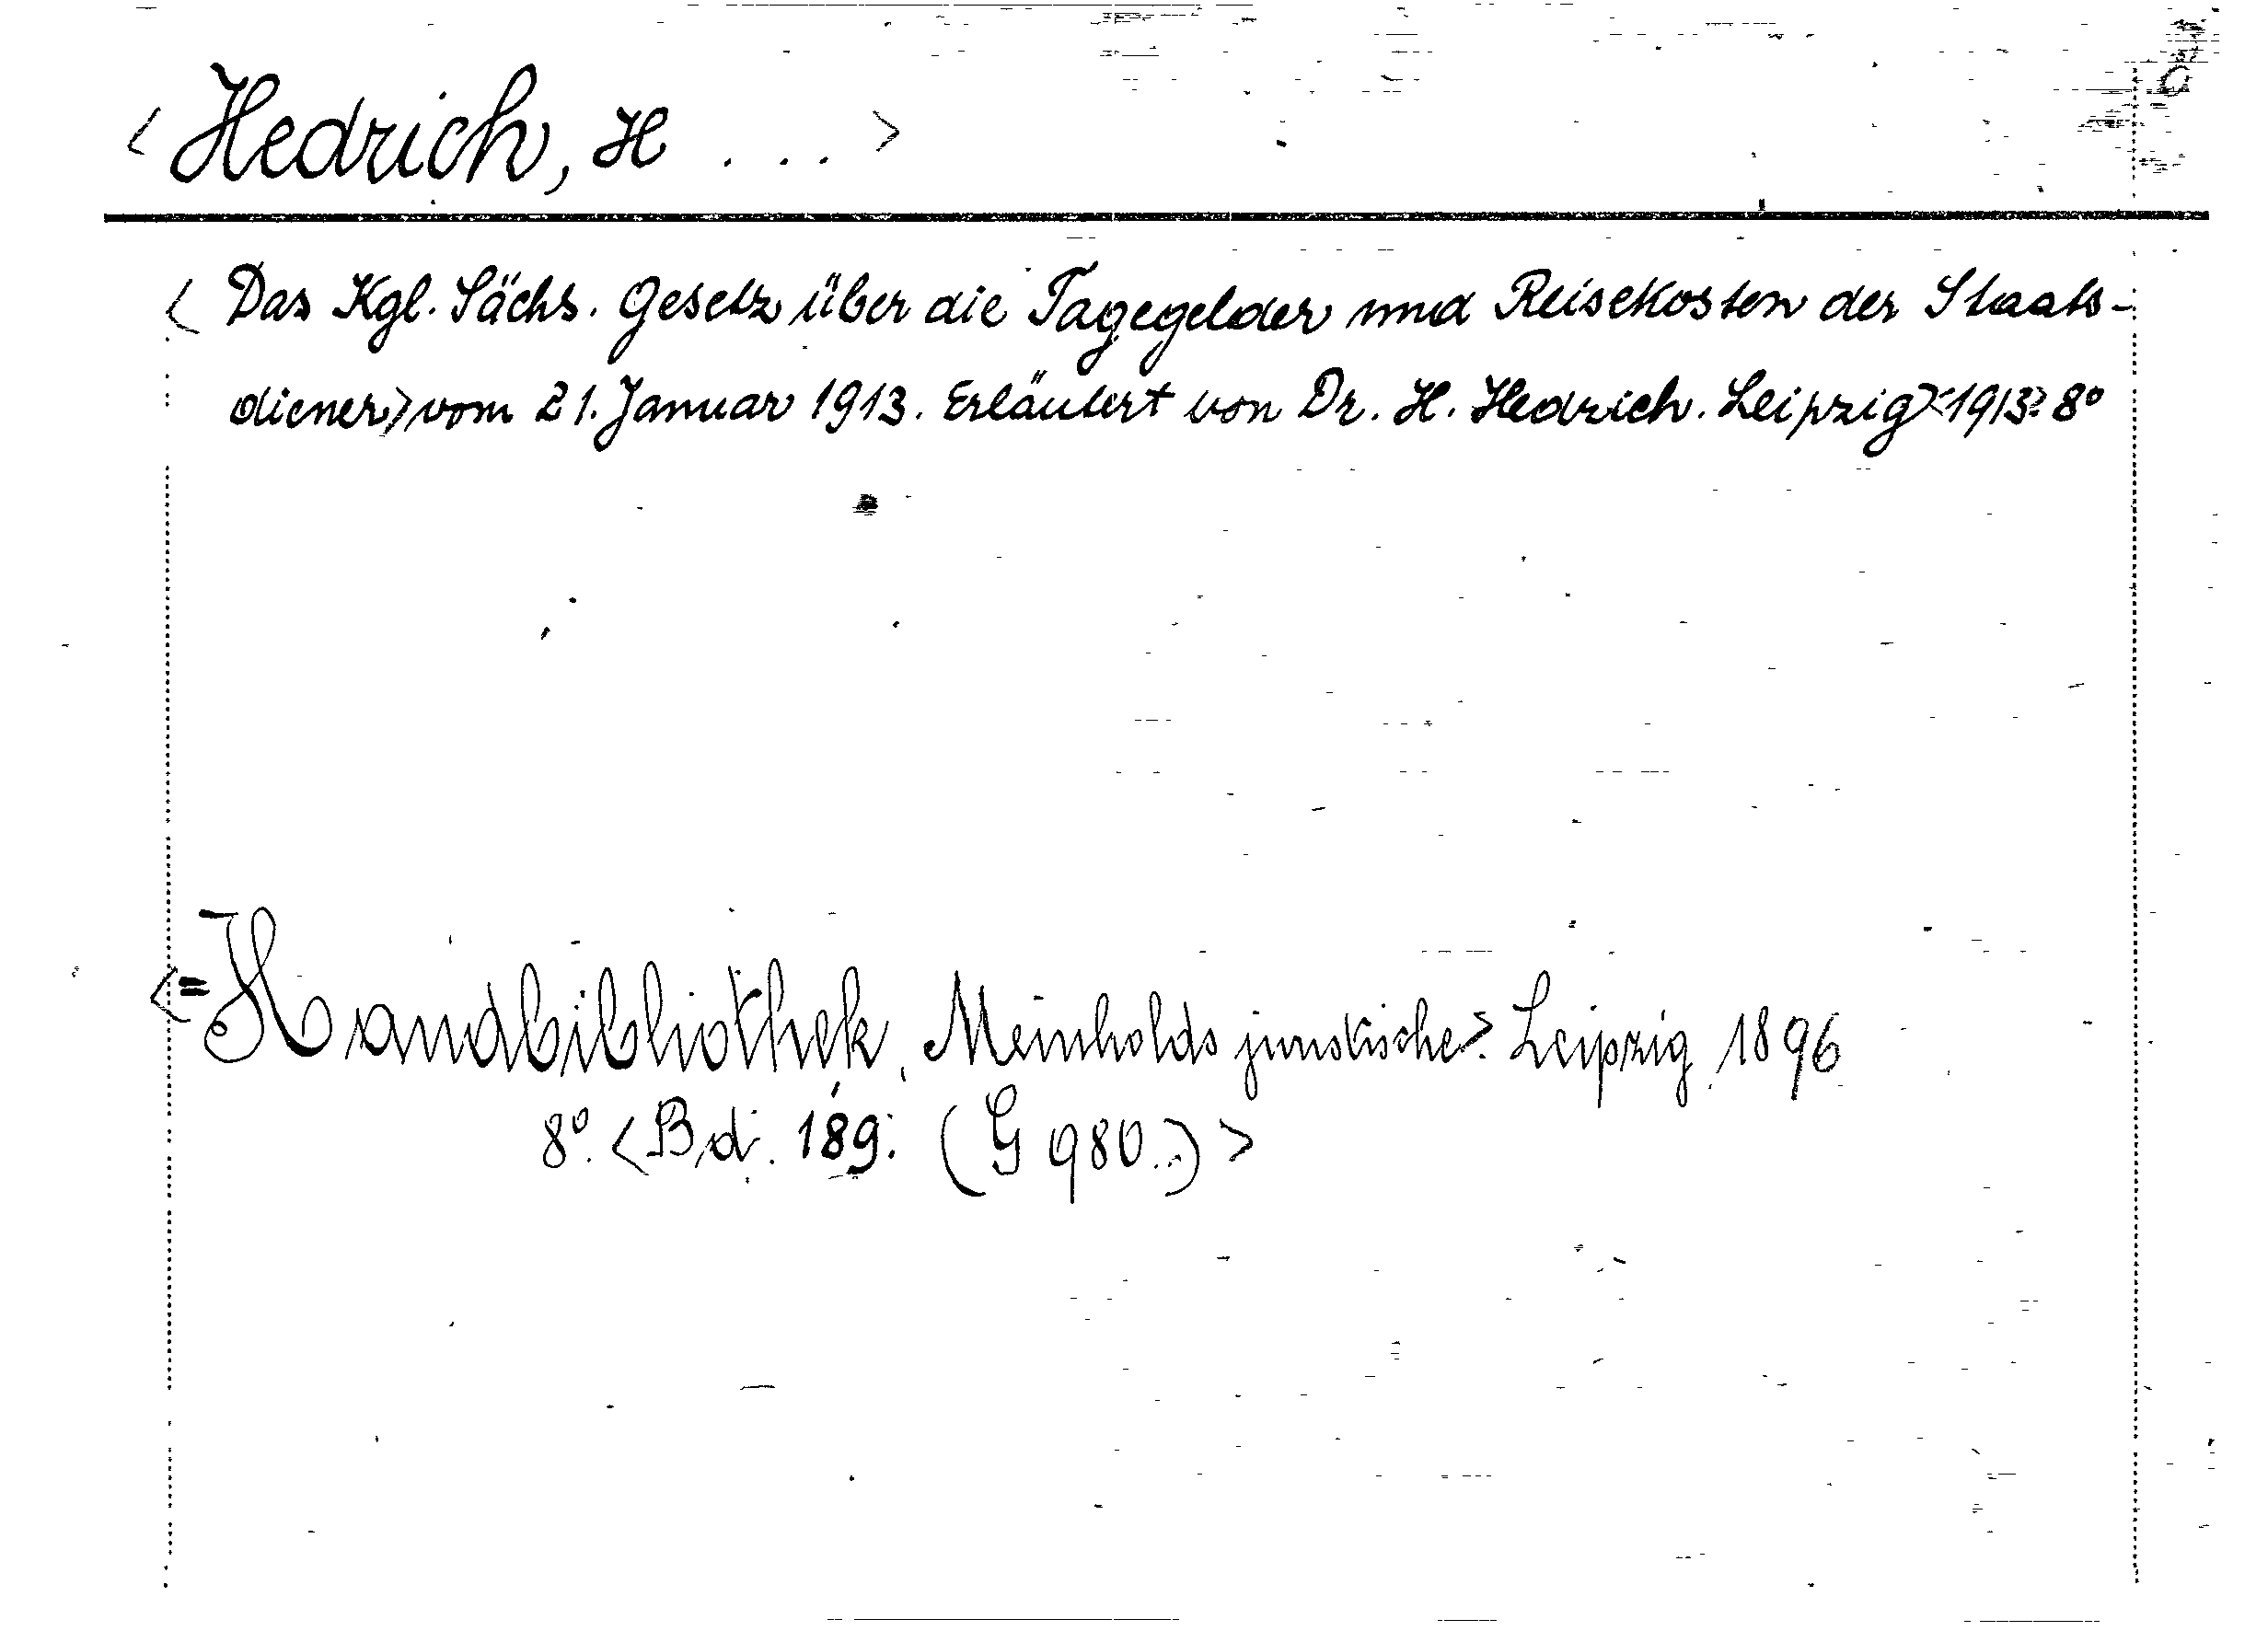 < Hedrich, H . . . . >
< Das Kgl. Sächs. Gesetz über die Tagegelder und Reisekosten der Staats-
diener> vom 21. Januar 1913. Erläutert von Dr. H. Hedrich. Leipzig > < 1913.> 8°
<= Handbibliothek, Meinholds juristische>. Leipzig 1896
8°. < Bd. 189. (G 980..) >